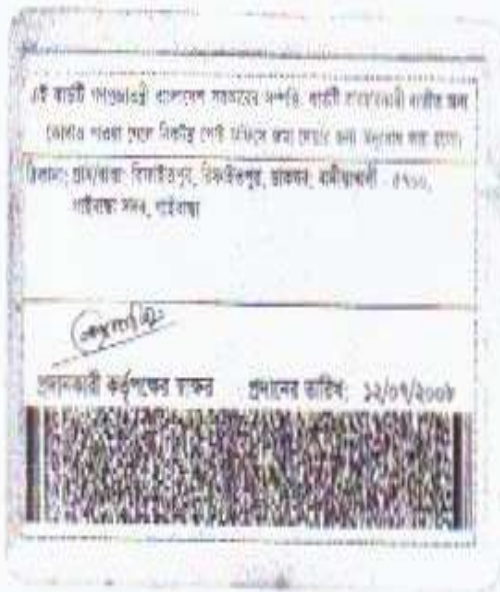 এই কার্ডটি গণপ্রজাতন্ত্রী বাংলাদেশ সরকারের সম্পত্তি। কার্ডটি ব্যবহারকারী ব্যতীত অন্য
কোথাও পাওয়া গেলে নিকটস্থ পোস্ট অফিসে জমা দেবার জন্য অনুরোধ করা হলো।
ঠিকানা: গ্রাম/রাস্তা: রিফাইতপুর, রিফাইতপুর, ডাকঘর: - ৫৭০০,
গাইবান্ধা সদর, গাইবান্ধা
প্রদানকারী কর্তৃপক্ষের স্বাক্ষর প্রদানের তারিখ: ১২/০৭/২০০৮